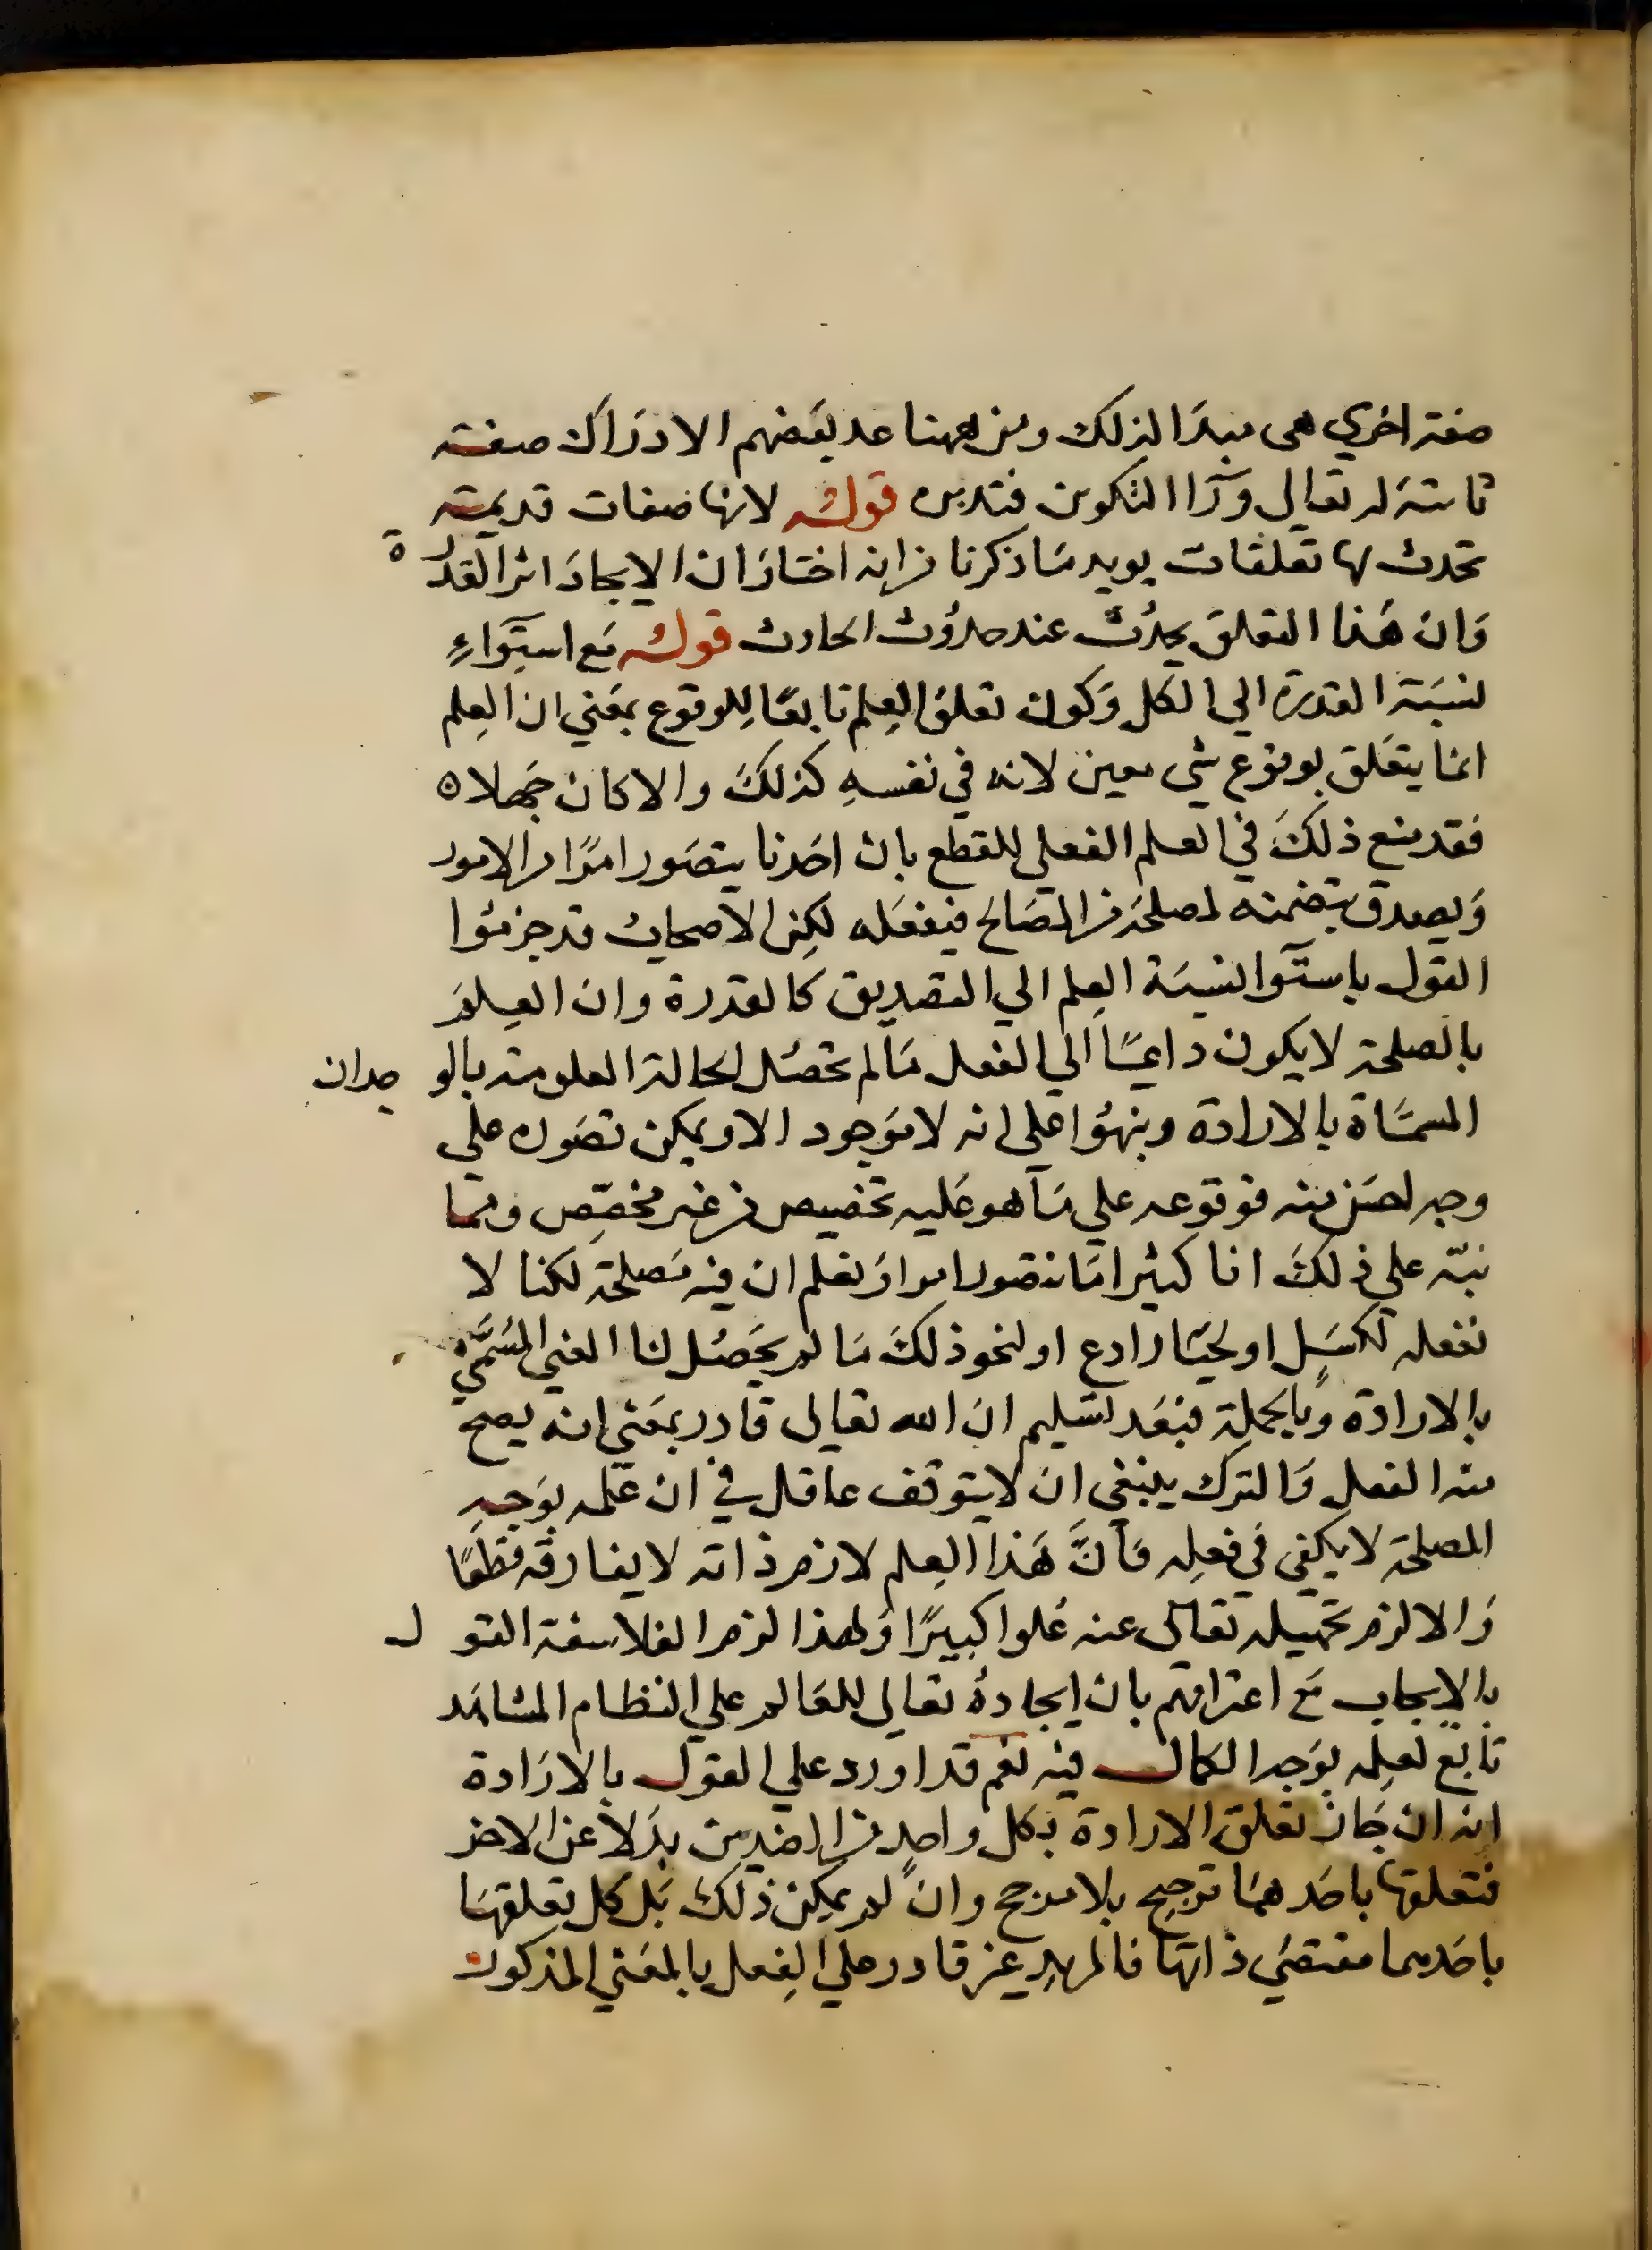 صفة اخري هى مبدا لذلك ومن ههنا عد بعضهم الادراك صفة
ثابتة له تعالى ورآا التكوين فتدبر قوله لانها صفات قديمة
تحدث لها تعلقات يويد ما ذكرنا من انه اختار ان الايجاد اثر القدرة
وان هذا التعلق يحدُث عند حدُوث الحادث قوله مع استوآءِ
نسبَة القدرة الي الكل وكون تعلق العِلم تابعًا للوقوع بمعَني ان العِلم
انما يتعَلق بوقوع شي معين لانه في نفسهِ كذلكَ والا كان جَهلا ٥
فقد منع ذلكَ في العلم الفعلي للقطع بان احَدنا يتصَور امرًا من الامور
وَيصدق بتضمنه لمصلحَة من المصَالح فيفعَله لكِن الاصحاب قد جزمُوا
القول باستوآ نسبَة العِلم الي التصديق كالقدرة وان العِلم
بالمصلحة لا يكون داعيًا الي الفعل مَا لم تحصُل الحالة المعلومة بالوجدان
المسمَّاة بالارادة ونبهُوا علي انه لا موَجود الا ويمكن تصَوره علي
وجه احسَن منه فوقوعه علي مَا هو عَليه تخصيص من غير مخصِّص ومما
نبّه علي ذلكَ انا كثيرا مَا نتصور امرا ونعلم ان فيه مَصلحة لكنا لا
نفعله لكسَلٍ او لحيَاءٍ رادع او لنحو ذلكَ مَا لم يحَصُل لنا المعَني المسَمَّي
بالارادة وَبالجملة فبعَد تسَليم انَ الله تعَالى قادر بمعَني انه يصح
منه الفعل وَالترك ينبغي ان لا يتوقف عاقل في ان عَلمه بوَجهِ
المصلحة لا يكفي في فعِله فانَّ هَذا العِلم لازم ذاته لا يفارقه قطعًا
وَالا لزم تجهيله تعَالى عنه عُلوا كبيرًا وَلهذا لزم الفلاسفة القول
بالايجاب مَع اعترافهم بان ايجادهُ تعَالي للعَالم علي النظام المشاهَد
تابَع لعِلمه بوَجه الكمال فيه نعَم قد اورد علي القول بالارَادة
انه ان جَاز تعَلق الارادة بكل واحدٍ من الضدين بدَلاً عن الاخر
فتعلقها باحَدهمَا ترجيح بلا مرجح وان لم يمكن ذلكَ بَل كل تعلقهَا
باحَدهما مقتضَي ذاتها فالمريد غير قادر علي الفِعل بالمعَني المذكور